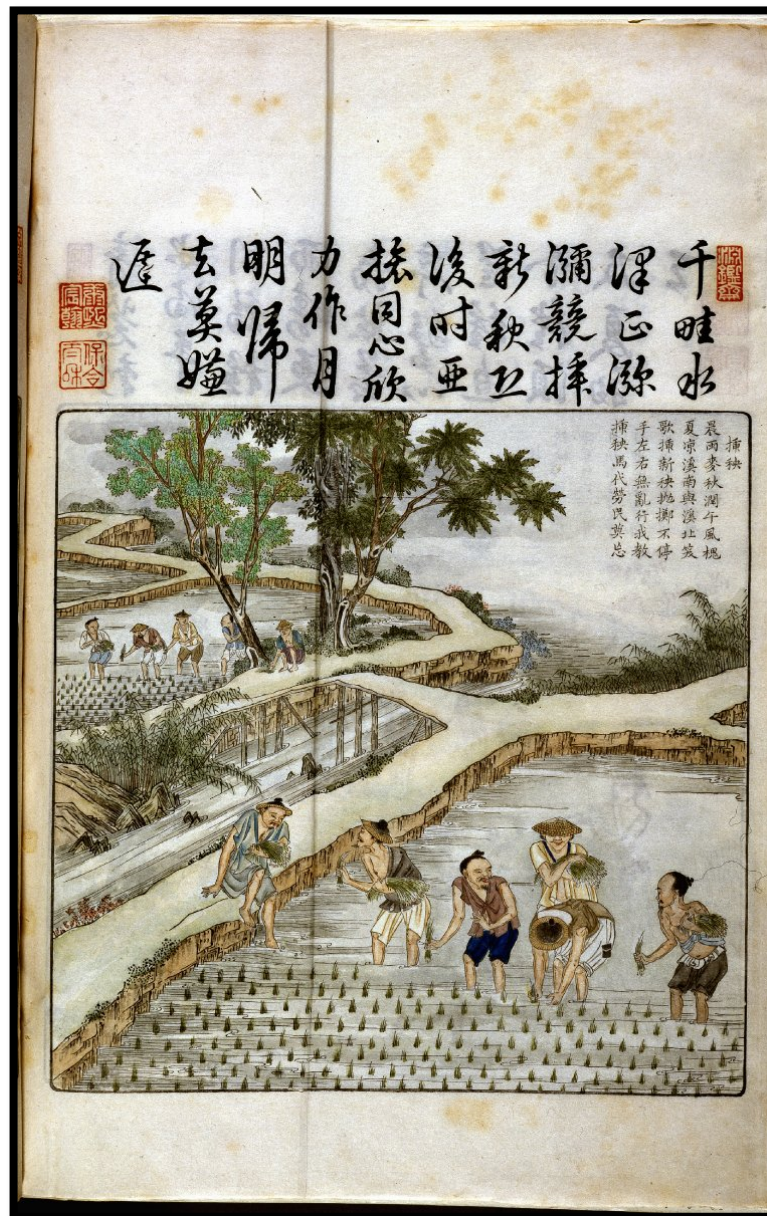 淵鑒齋
千畦水
澤正瀰
瀰競挿
新秧恐
後时亞
旅同心欣
力作月
明歸
去莫嫌
遲
康熙
宸翰
保合
太和
挿秧
晨雨麥秋潤午風槐
夏凉溪南與溪北笑
歌挿新秧拋擲不停
手左右無亂行我教
挿秧馬代勞民莫忘